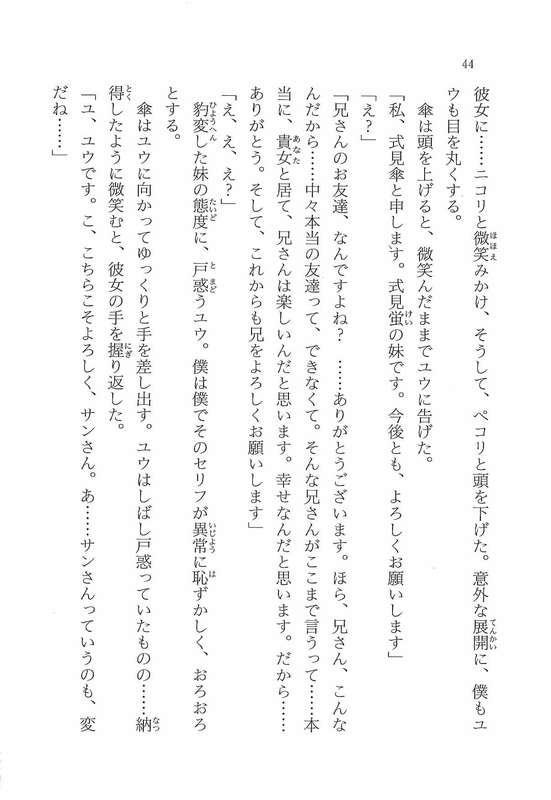 44
彼女に……ニコリと微笑みかけ、そうして、ペコリと頭を下げた。意外な展開に、僕もユ
ウも目を丸くする。
　傘は頭を上げると、微笑んだままでユウに告げた。
「私、式見傘と申します。式見蛍の妹です。今後とも、よろしくお願いします」
「え？」
「兄さんのお友達、なんですよね？　……ありがとうございます。ほら、兄さん、こんな
んだから……中々本当の友達って、できなくて。そんな兄さんがここまで言うって……本
当に、貴女と居て、兄さんは楽しいんだと思います。幸せなんだと思います。だから……
ありがとう。そして、これからも兄をよろしくお願いします」
「え、え、え？」
　豹変した妹の態度に、戸惑うユウ。僕は僕でそのセリフが異常に恥ずかしく、おろおろ
とする。
　傘はユウに向かってゆっくりと手を差し出す。ユウはしばし戸惑っていたものの……納
得したように微笑むと、彼女の手を握り返した。
「ユ、ユウです。こ、こちらこそよろしく、サンさん。あ……サンさんっていうのも、変
だね……」